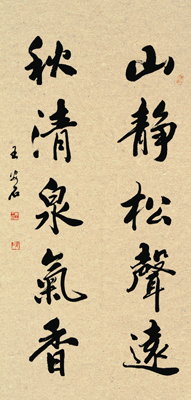 山静松聲遠
秋清泉氣香